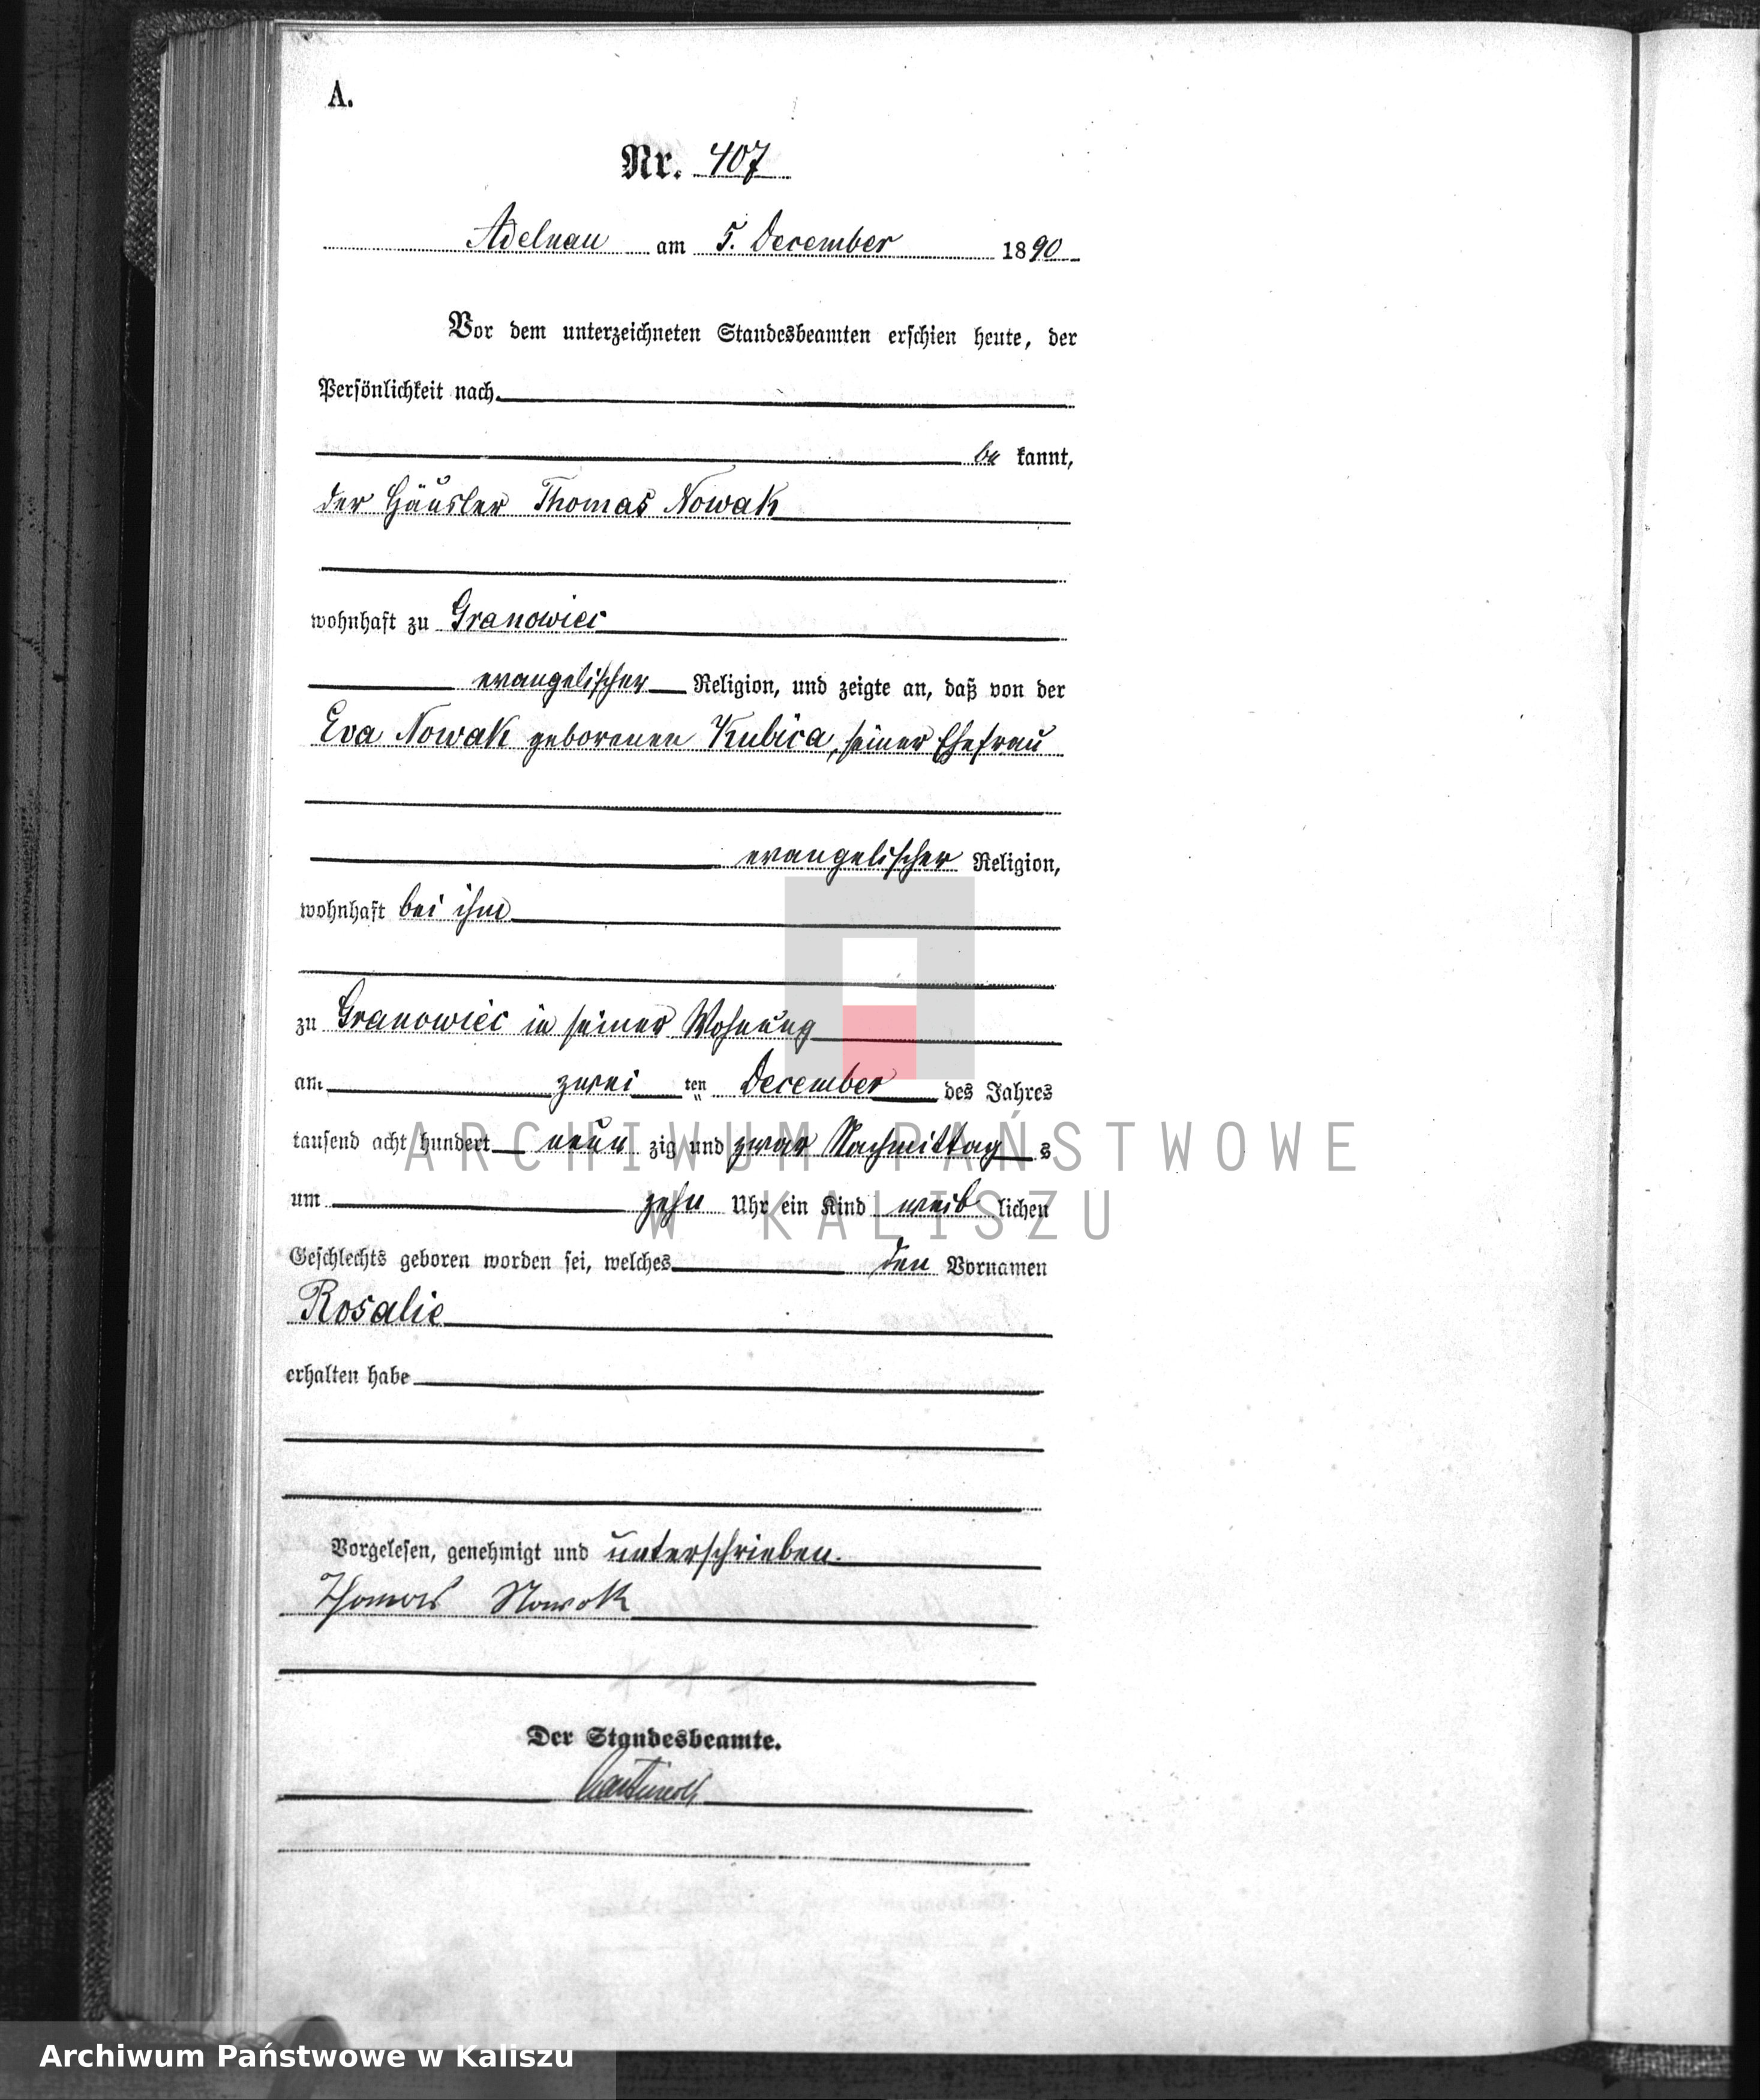 A.
Nr. 407
Adelnau am 5. December 1890
Vor dem unterzeichneten Standesbeamten erschien heute, der
Persönlichkeit nach
be kannt,
der Häusler Thomas Nowak
wohnhaft zu Granowiec
evangelischer Religion, und zeigte an, daß von der
Eva Nowak geborenen Kubica, seiner Ehefrau
evangelischer Religion,
wohnhaft bei ihm
zu Granowiec in seiner Wohnung
am zwei ten December des Jahres
tausend acht hundert neun zig und zwar Nachmittag s
um zehn Uhr ein Kind weib lichen
Geschlechts geboren worden sei, welches den Vornamen
Rosalie
erhalten habe
Vorgelesen, genehmigt und unterschrieben.
Thomas Nowak
Der Standesbeamte.
ARCHIWUM PAŃSTWOWE
W KALISZU
Archiwum Państwowe w Kaliszu